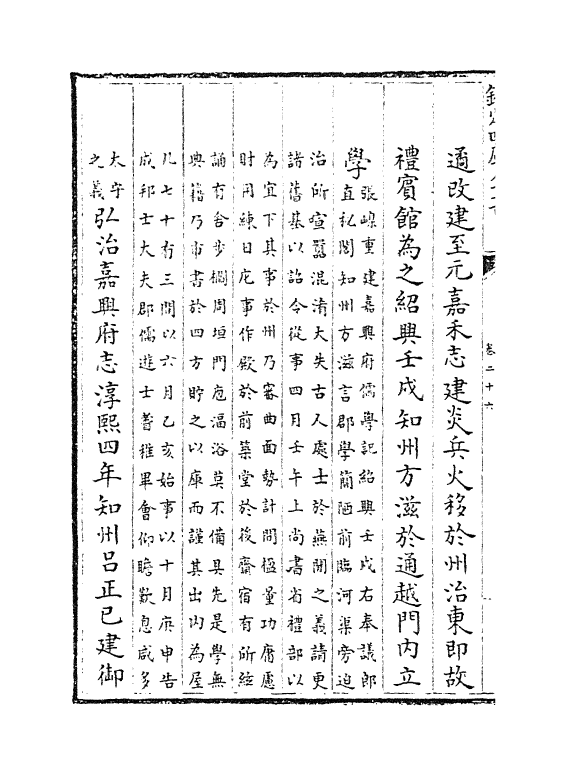 卷二十六
遹改建至元嘉禾志建炎兵火移於州治東即故
禮賓館為之紹興壬戌知州方滋於通越門内立
學
張嵲重建嘉興府儒學記紹興壬戌右奉議郎
直秘閣知州方滋言郡學簡陋前臨河渠旁迫
治所喧囂混淆大失古人處士於燕閒之義請更
諸舊基以詔令從事四月壬午上尚書省禮部以
為宜下其事於州乃審曲面勢計間楹量功庸慮
財用練日庀事作殿於前築堂於後齋宿有所絃
誦有舍步櫩周垣門庖湢浴莫不備具先是學無
典籍乃市書於四方貯之以庫而謹其出内為屋
凡七十有三間以六月乙亥始事以十月庚申告
成邦士大夫郡儒遊士耆稚畢會仰瞻歎息咸多
太守
之義
弘治嘉興府志淳熙四年知州吕正已建御